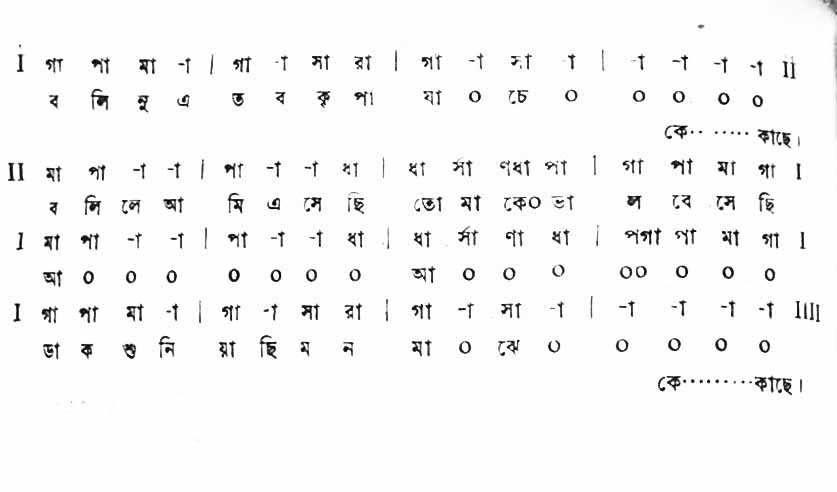 I গা পা মা -া | গা -া সা রা | গা -া সা -া | -া -া -া -া II
ব লি নু এ ত ব কৃ পা যা ০ চে ০ ০ ০ ০ ০
কে·· ······ কাছে।
II মা পা -া -া | পা -া -া ধা | ধা র্সা ণধা পা | গা পা মা গা I
ব লি লে আ মি এ সে ছি তো মা কে০ ভা ল বে সে ছি
I মা পা -া -া | পা -া -া ধা | ধা র্সা ণা ধা | পগা পা মা গা I
আ ০ ০ ০ ০ ০ ০ ০ আ ০ ০ ০ ০০ ০ ০ ০
I গা পা মা -া | গা -া সা রা | গা -া সা -া | -া -া -া -া IIII
ডা ক শু নি য়া ছি ম ন মা ০ ঝে ০ ০ ০ ০ ০
কে·········কাছে।